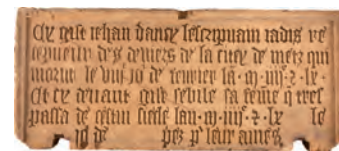 Cy gist iehan dancy lescripuain iadis re
cepueur des deniers de la citey de metz qui
morut le viijͤ io de feurier lã · m · iiijͨ · ⁊ · lx ·
Et cy deuant gist sebile sa feme q tres
passa de cestui siecle lan · m · iiijͨ · ⁊ · lx le
io de pez pͬ leur ames